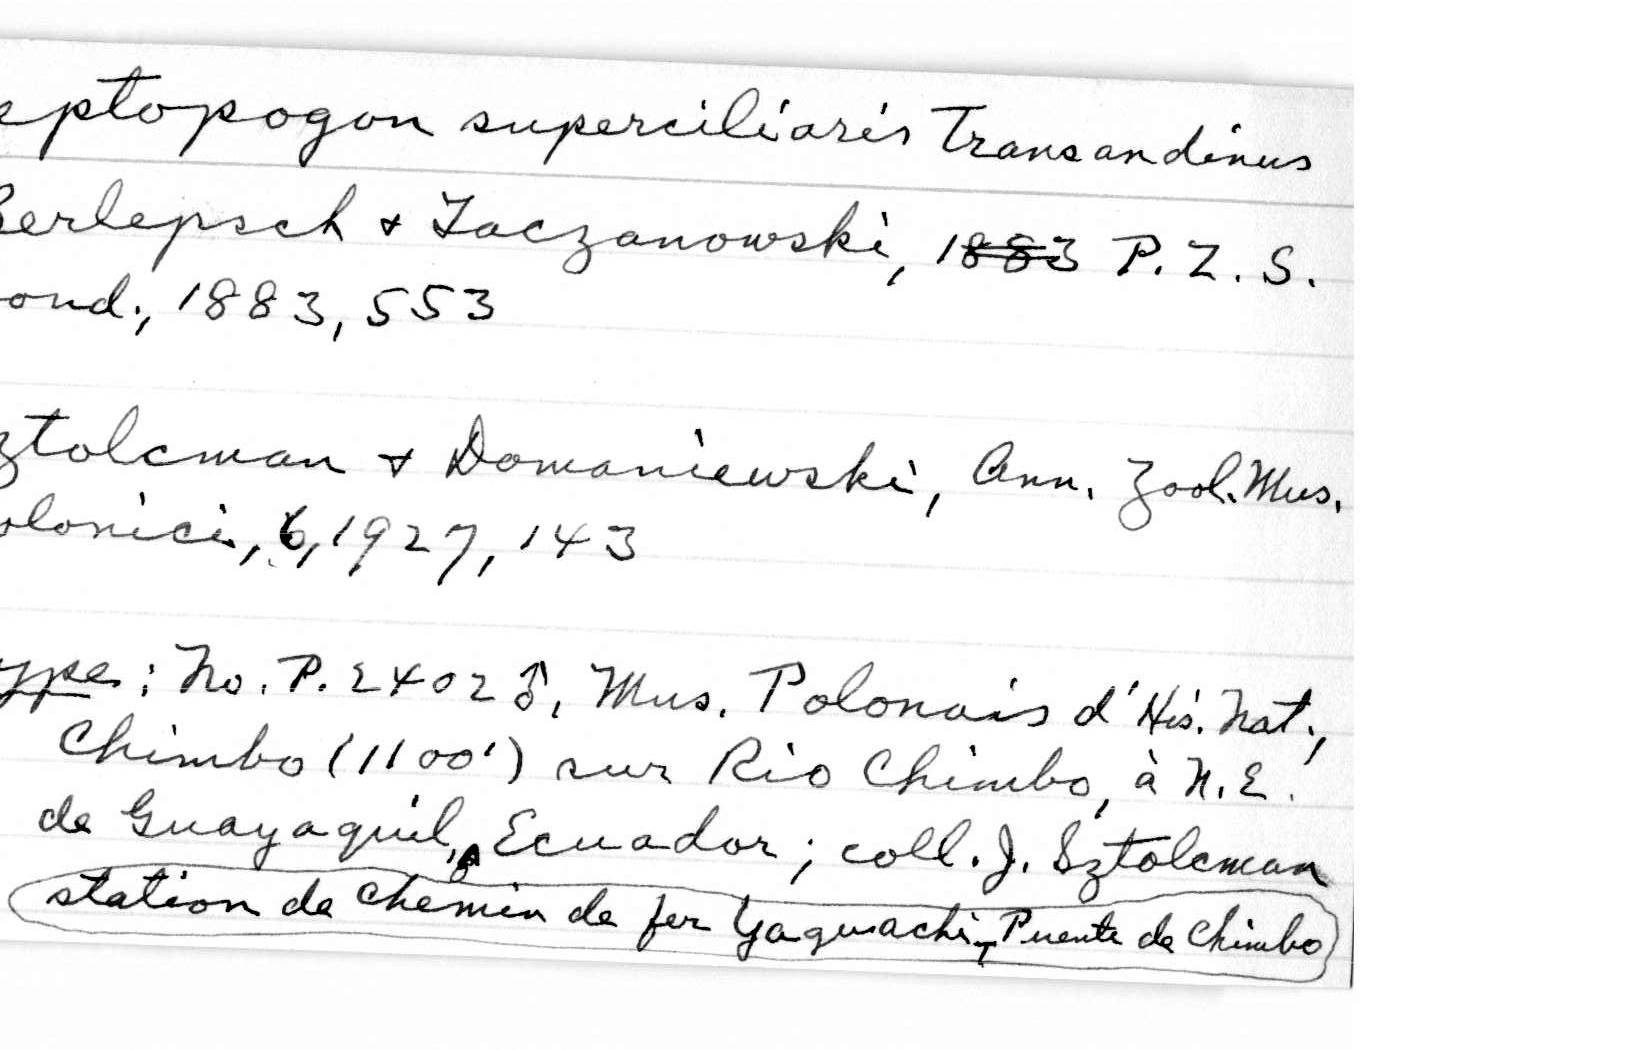 eptopogon superciliaris Transandinus
Berlepsch & Taczanowski, 1883 P. Z. S.
ond., 1883, 553
ztolcman & Domaniewski, Ann. Zool. Mus.
olonici, 6, 1927, 143
ype: No. P. 2402 ♂, Mus. Polonais d'His. Nat.,
Chimbo (1100') sur Rio Chimbo, à N.E.
de Guayaquil, Ecuador; coll. J. Sztolcman
station de chemin de fer Yaguachi - Puente de Chimbo